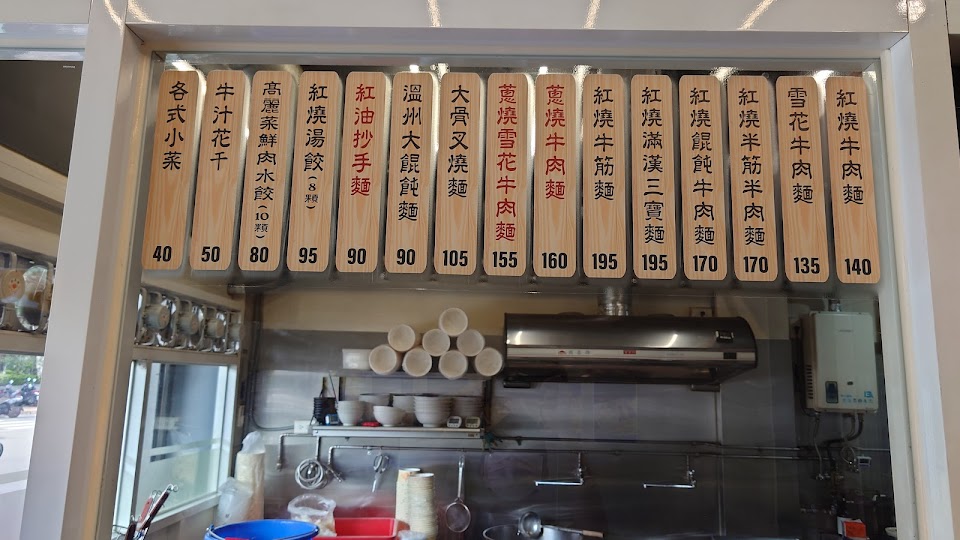 紅燒牛肉麵
140
雪花牛肉麵
135
紅燒半筋半肉麵
170
紅燒餛飩牛肉麵
170
紅燒滿漢三寶麵
195
紅燒牛筋麵
195
蔥燒牛肉麵
160
蔥燒雪花牛肉麵
155
大骨叉燒麵
105
溫州大餛飩麵
90
紅油抄手麵
90
紅燒湯餃(8顆)
95
高麗菜鮮肉水餃(10顆)
80
牛汁花干
50
各式小菜
40